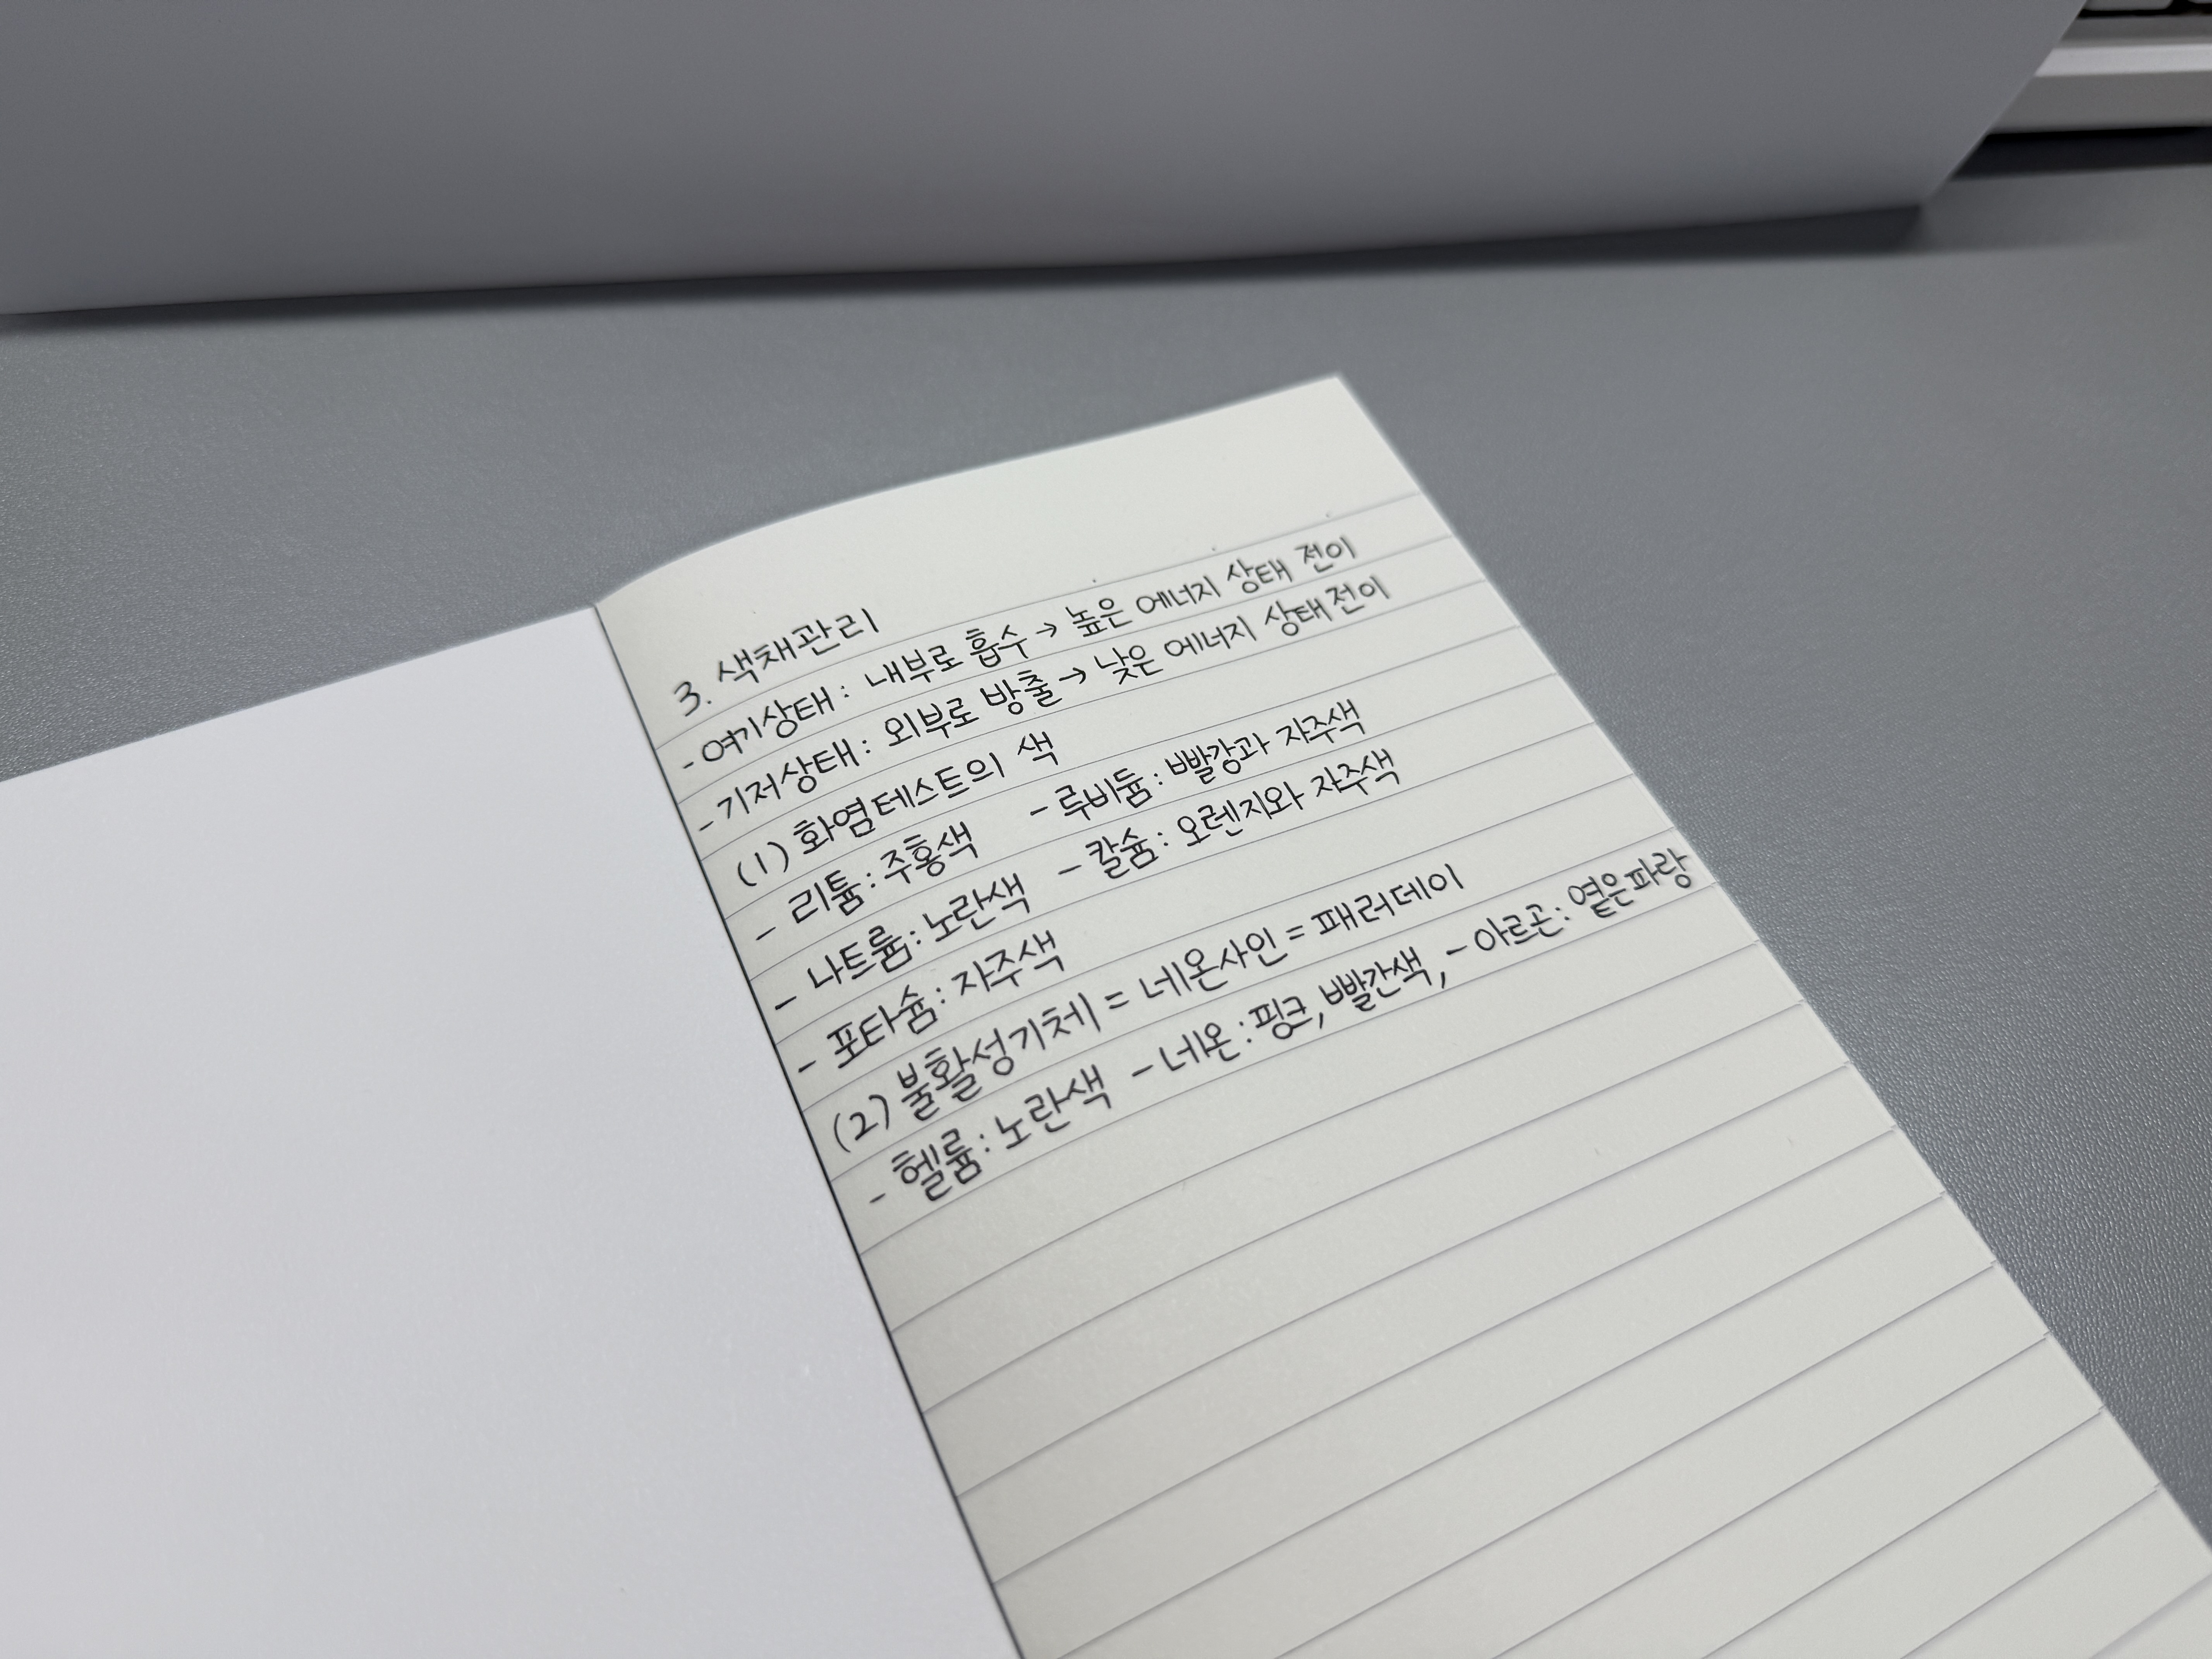 3. 색채관리
- 여기상태 : 내부로 흡수 → 높은 에너지 상태 전이
- 기저상태 : 외부로 방출 → 낮은 에너지 상태 전이
(1) 화염테스트의 색
- 리튬 : 주홍색 - 루비듐 : 빨강과 자주색
- 나트륨 : 노란색 - 칼슘 : 오렌지와 자주색
- 포타슘 : 자주색
(2) 불활성기체 = 네온사인 = 패러데이
- 헬륨 : 노란색 - 네온 : 핑크, 빨간색, - 아르곤 : 옅은파랑